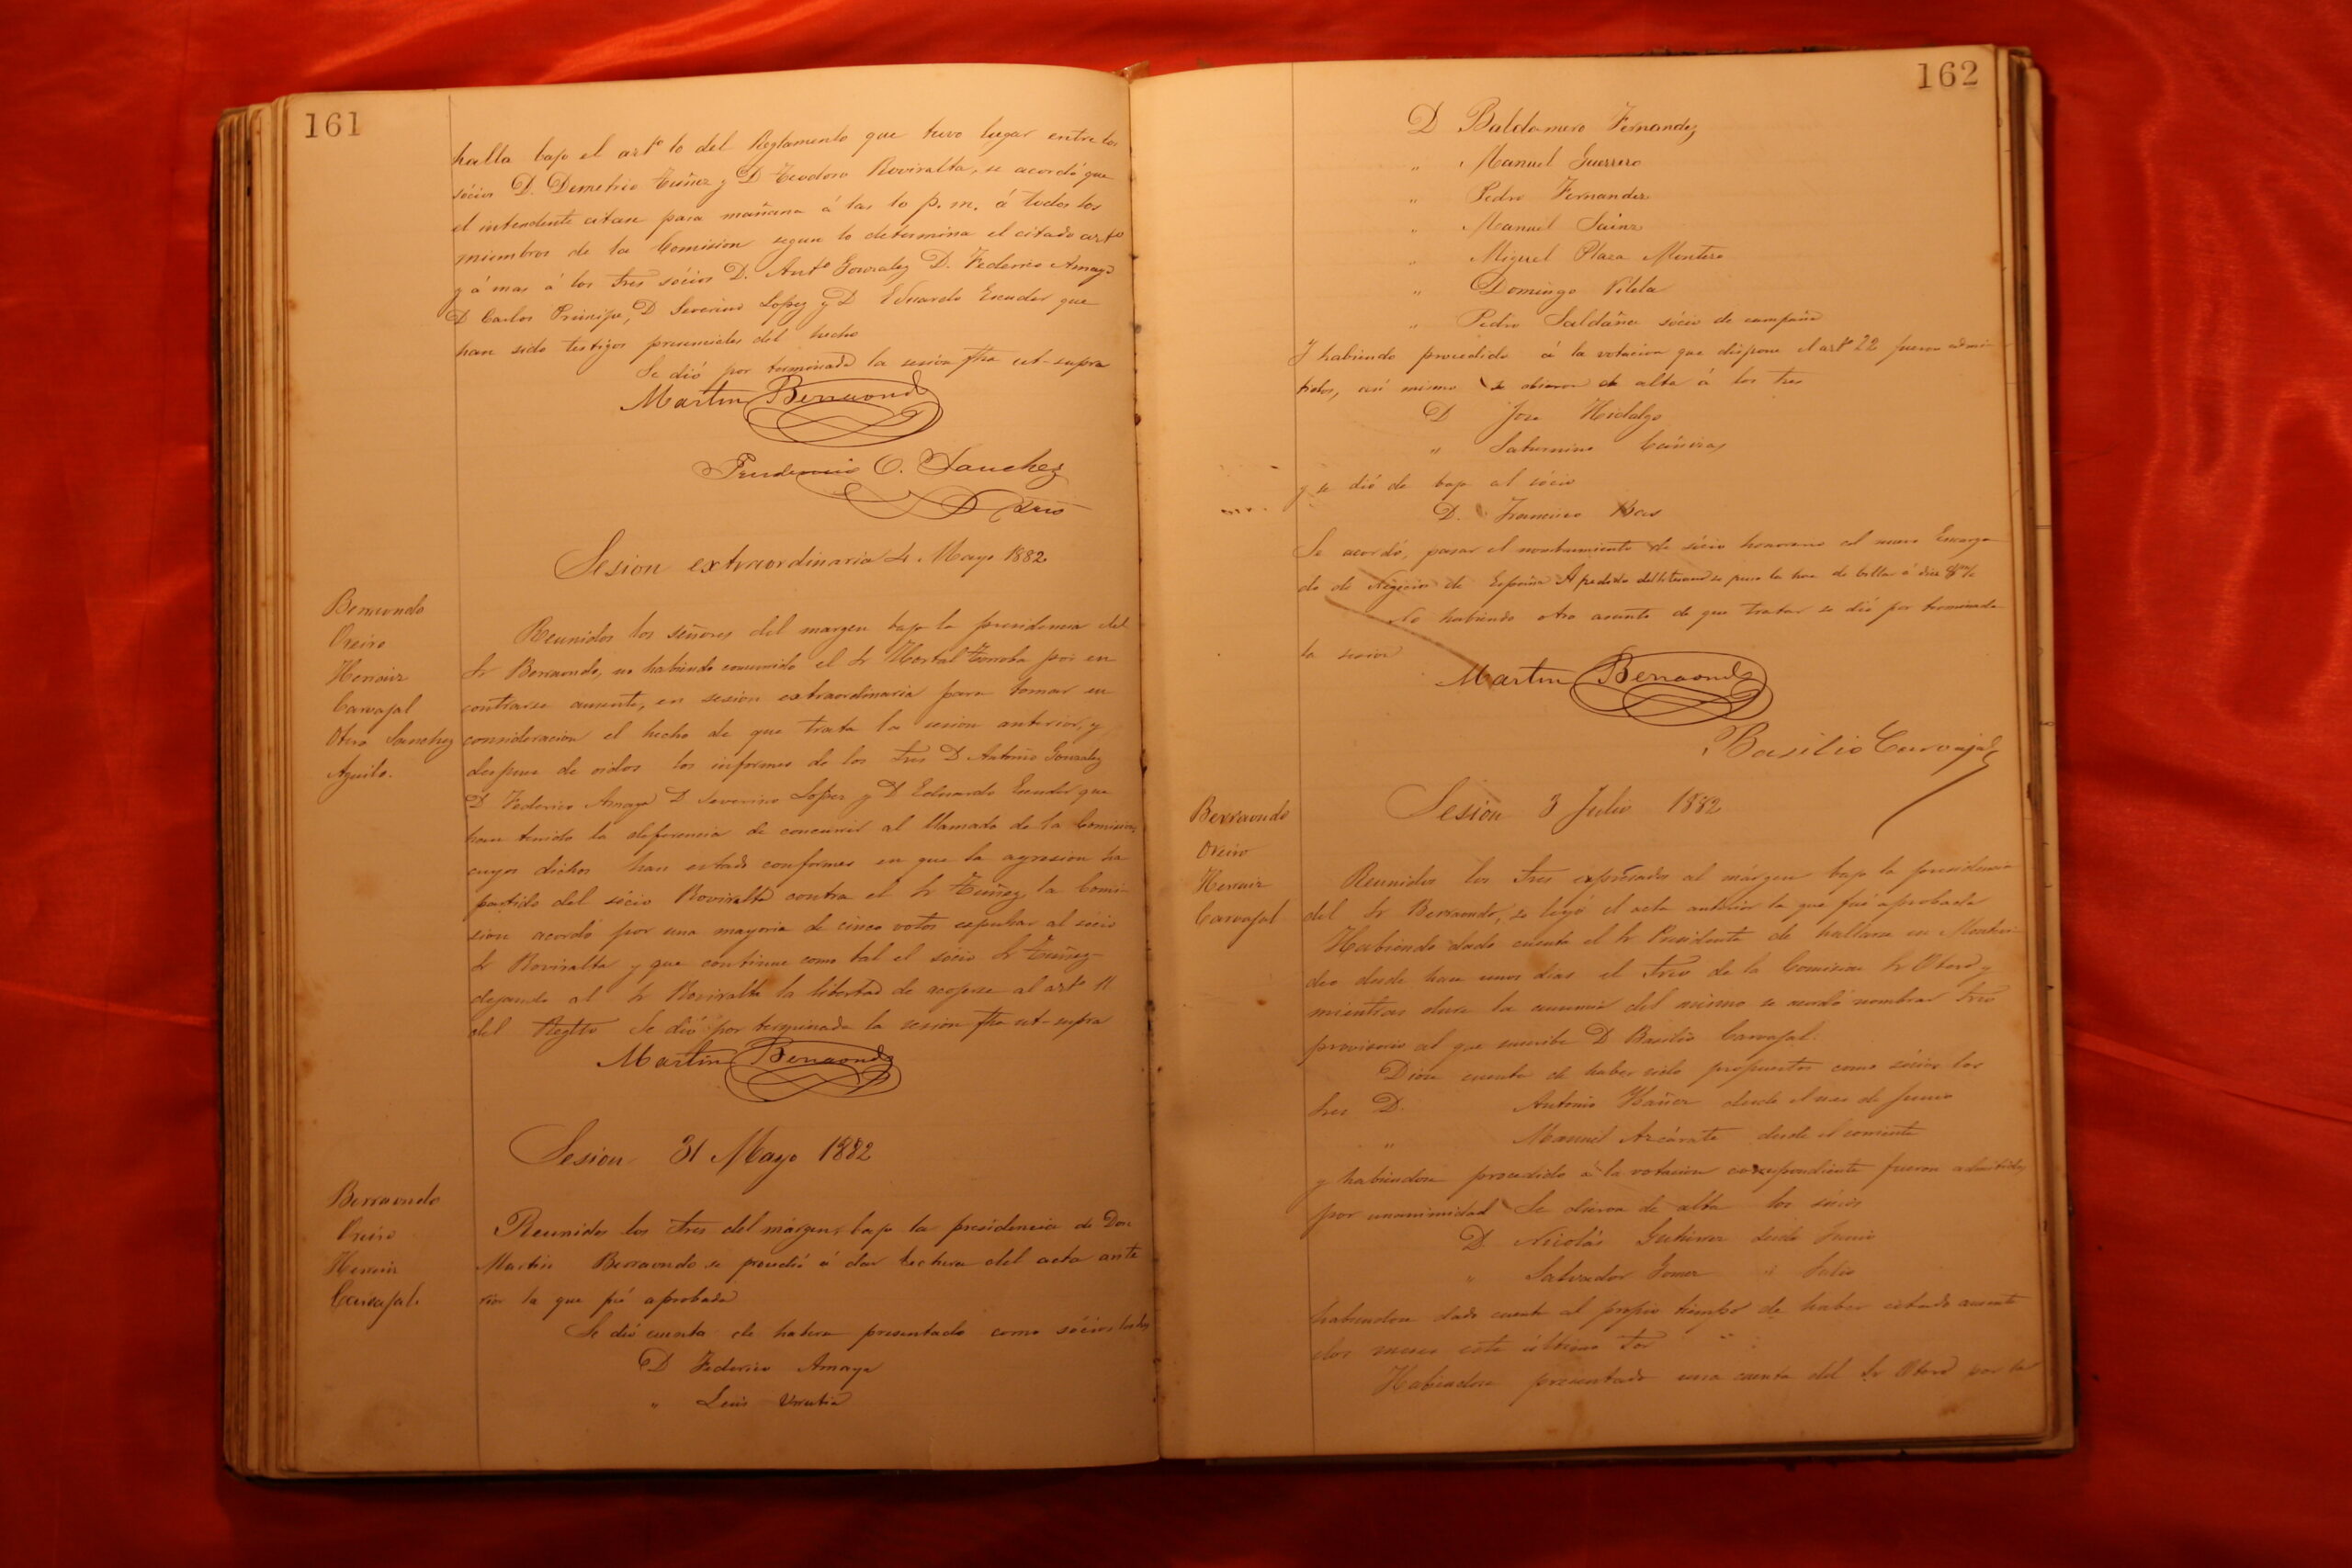 161
halla bajo el artº 10 del Reglamento que tuvo lugar entre los
sócios D. Demetrio Tuñez y D Teodoro Roviralta, se acordó que
el intendente citase para mañana á las 10 p. m. á todos los
miembros de la Comision segun lo determina el citado artº
y á mas á los Sres sócios D. Antº Gonzalez D. Federico Amaya
D Carlos Principe, D Severino Lopez y D Eduardo Escuder que
han sido testigos presenciales del hecho
Se dió por terminada la sesion fha ut-supra
Martin Berraondo
Prudencio O. Sanchez
Srio
Sesion extraordinaria 4 Mayo 1882
Berraondo
Oreiro
Herraiz
Carvajal
Otero Sanchez
Aguilo.
Reunidos los señores del margen bajo la presidencia del
Sr Berraondo, no habiendo concurrido el Sr por en
contrarse ausente, en sesion extraordinaria para tomar en
consideracion el hecho de que trata la sesion anterior, y
despues de oidos los informes de los Sres D Antonio Gonzalez
D Federico Amaya D Severino Lopez y D Eduardo Escuder que
han tenido la deferencia de concurrir al llamado de la Comision,
cuyos dichos han estado conformes en que la agresion ha
partido del sócio Roviralta contra el Sr Tuñez, la Comi-
sion acordó por una mayoria de cinco votos espulsar al socio
Sr Roviralta y que continue como tal el sócio Sr Tuñez-
dejando al Sr Roviralta la libertad de acojerse al artº 11
del Regltº Se dió por terminada la sesion fha ut-supra
Martin Berraondo
Sesion 31 Mayo 1882
Berraondo
Oreiro
Herraiz
Carvajal.
Reunidos los Sres del márgen, bajo la presidencia de Don
Martin Berraondo se procedió á dar lectura del acta ante
rior la que fué aprobada
Se dió cuenta de haberse presentado como sócios los Sres
D Federico Amaya
" Luis Urrutia
162
D Baldomero Fernandez
" Manuel Guerrero
" Pedro Fernandez
" Manuel Sainz
" Miguel Plaza Montero
" Domingo Vilela
" Pedro Saldaña sócio de campaña
Y habiendo procedido á la votacion que dispone el artº 22 fueron admi-
tidos, asi mismo se dieron de alta á los Sres
D Jose Hidalgo
" Saturnino
y se dió de baja al sócio
D. Francisco Bas
Se acordó, pasar el nombramiento de sócio honorario al nuevo Encarga
do de Negocios de España A pedido del se puso la hora de billar á diez
No habiendo otro asunto de que tratar se dió por terminada
la sesion
Martin Berraondo
Basilio Carvajal
Sesion 3 Julio 1882
Berraondo
Oreiro
Herraiz
Carvajal
Reunidos los Sres expresados al márgen bajo la presidencia
del Sr Berraondo, se leyó el acta anterior la que fué aprobada
Habiendo dado cuenta el Sr Presidente de hallarse en Montevi-
deo desde hace unos dias el Srio de la Comision Sr Otero y
mientras dure la ausencia del mismo se acordó nombrar Srio
provisorio al que suscribe D Basilio Carvajal.
Diose cuenta de haber sido propuestos como sócios los
Sres D. Antonio desde el mes de Junio
" Manuel Azcárate desde el corriente
y habiendose procedido á la votacion correspondiente fueron admitidos
por unanimidad Se dieron de alta los sócios
D. Nicolás Gutierrez desde Junio
" Salvador Gomez " Julio
habiendose dado cuenta al propio tiempo de haber estado ausente
dos meses este último Sor
Habiendose presentado una cuenta del Sr Otero por la